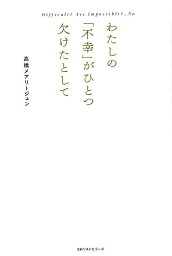 Difficult? Yes. Impossible?...No
わたしの
「不幸」がひとつ
欠けたとして
高橋メアリージュン
KKベストセラーズ